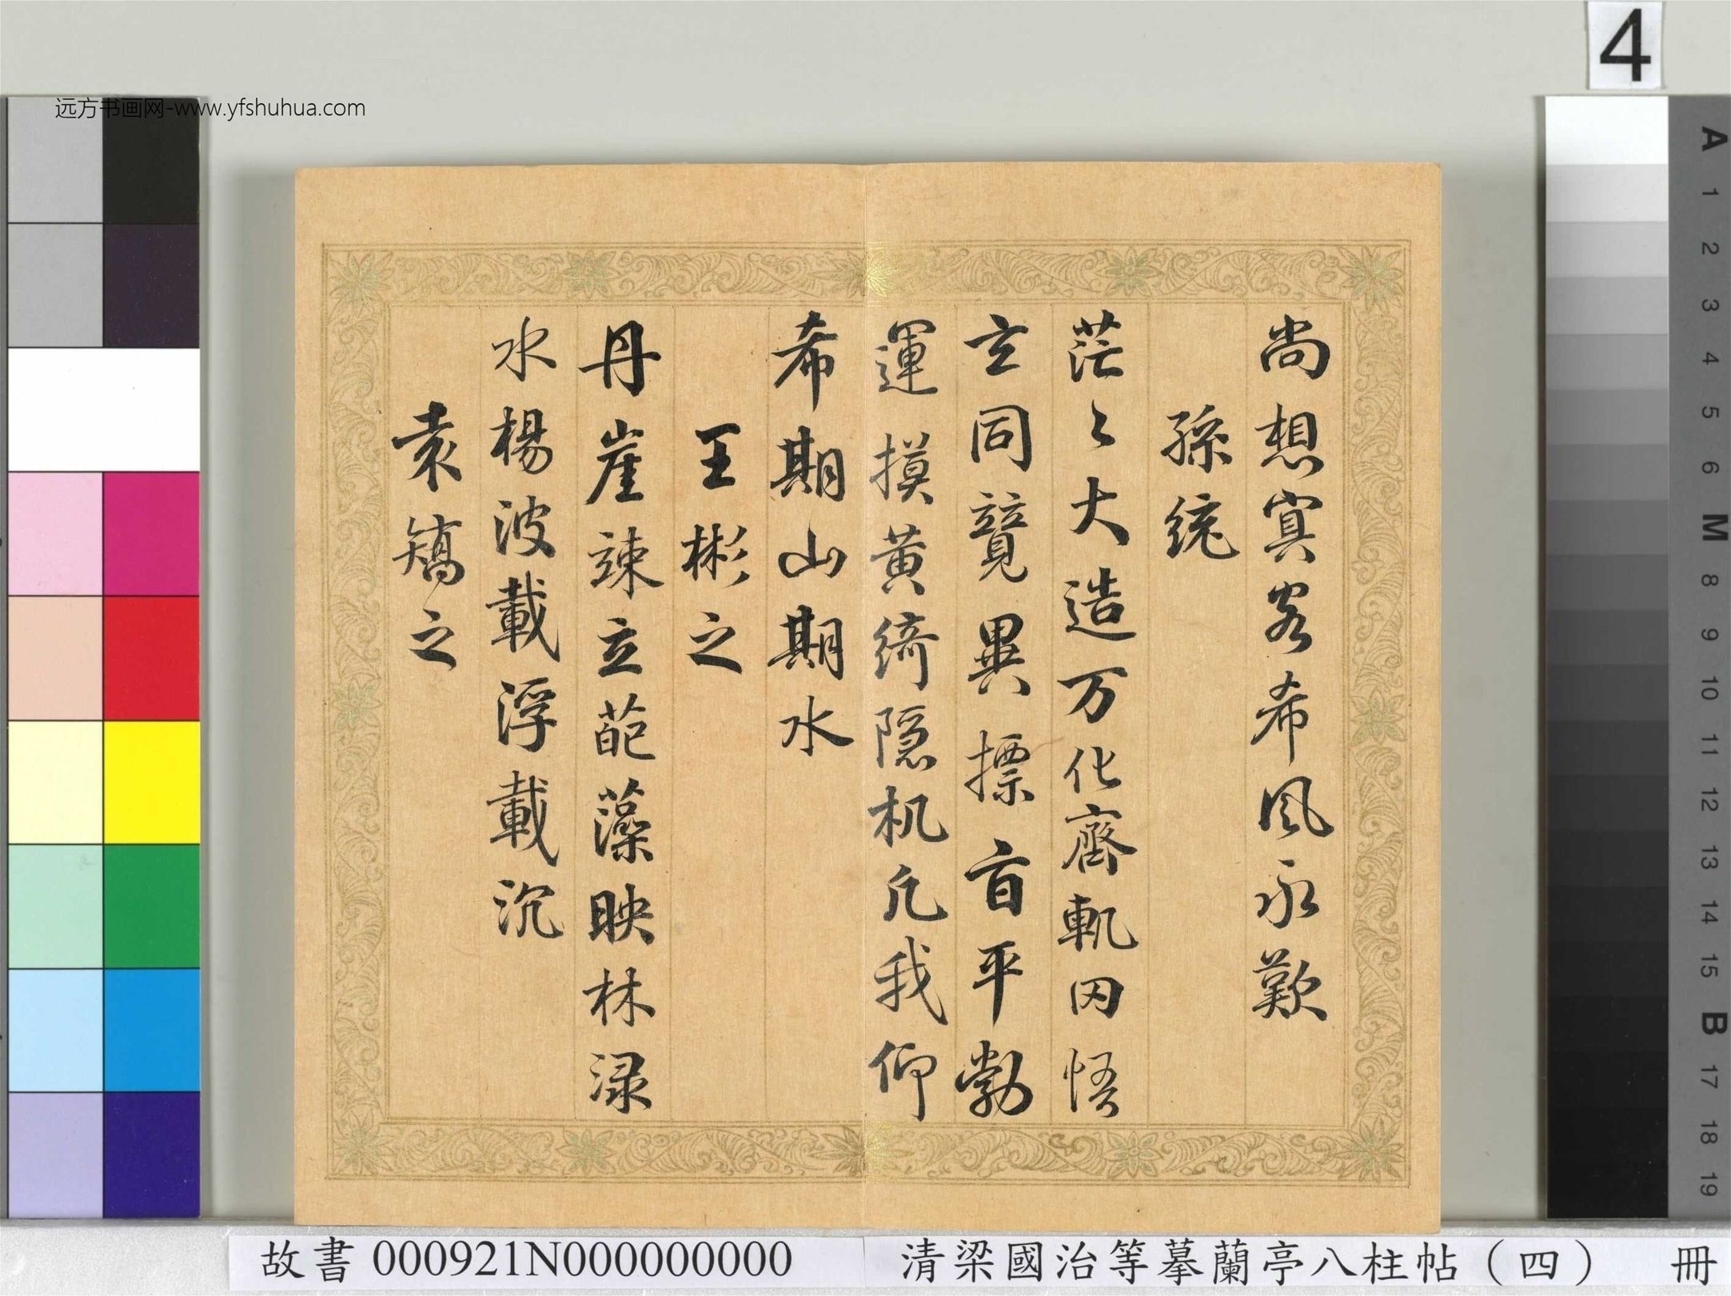 远方书画网-www.yfshuhua.com
4
尚想㝠客希風永歎
孫統
茫〻大造万化齊軌因悟
玄同競異摽旨平勃
運摸黄綺隐机凢我仰
希期山期水
王彬之
丹崖竦立葩藻映林渌
水楊波載浮載沉
袁矯之
A 1 2 3 4 5 6 M 8 9 10 11 12 13 14 15 B 17 18 19
故書 000921N000000000 清梁國治等摹蘭亭八柱帖（四） 冊